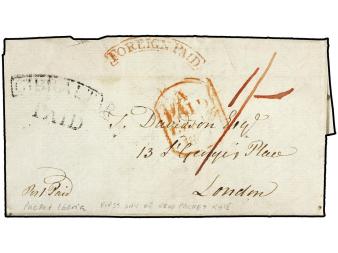 FOREIGN PAID
GIBRALTAR
PAID
PAID
1/-
S. Davidson Esqr.
13 St. George's Place
London
Post Paid
PACKET IBERIA FIRST DAY OF NEW PACKET RATE